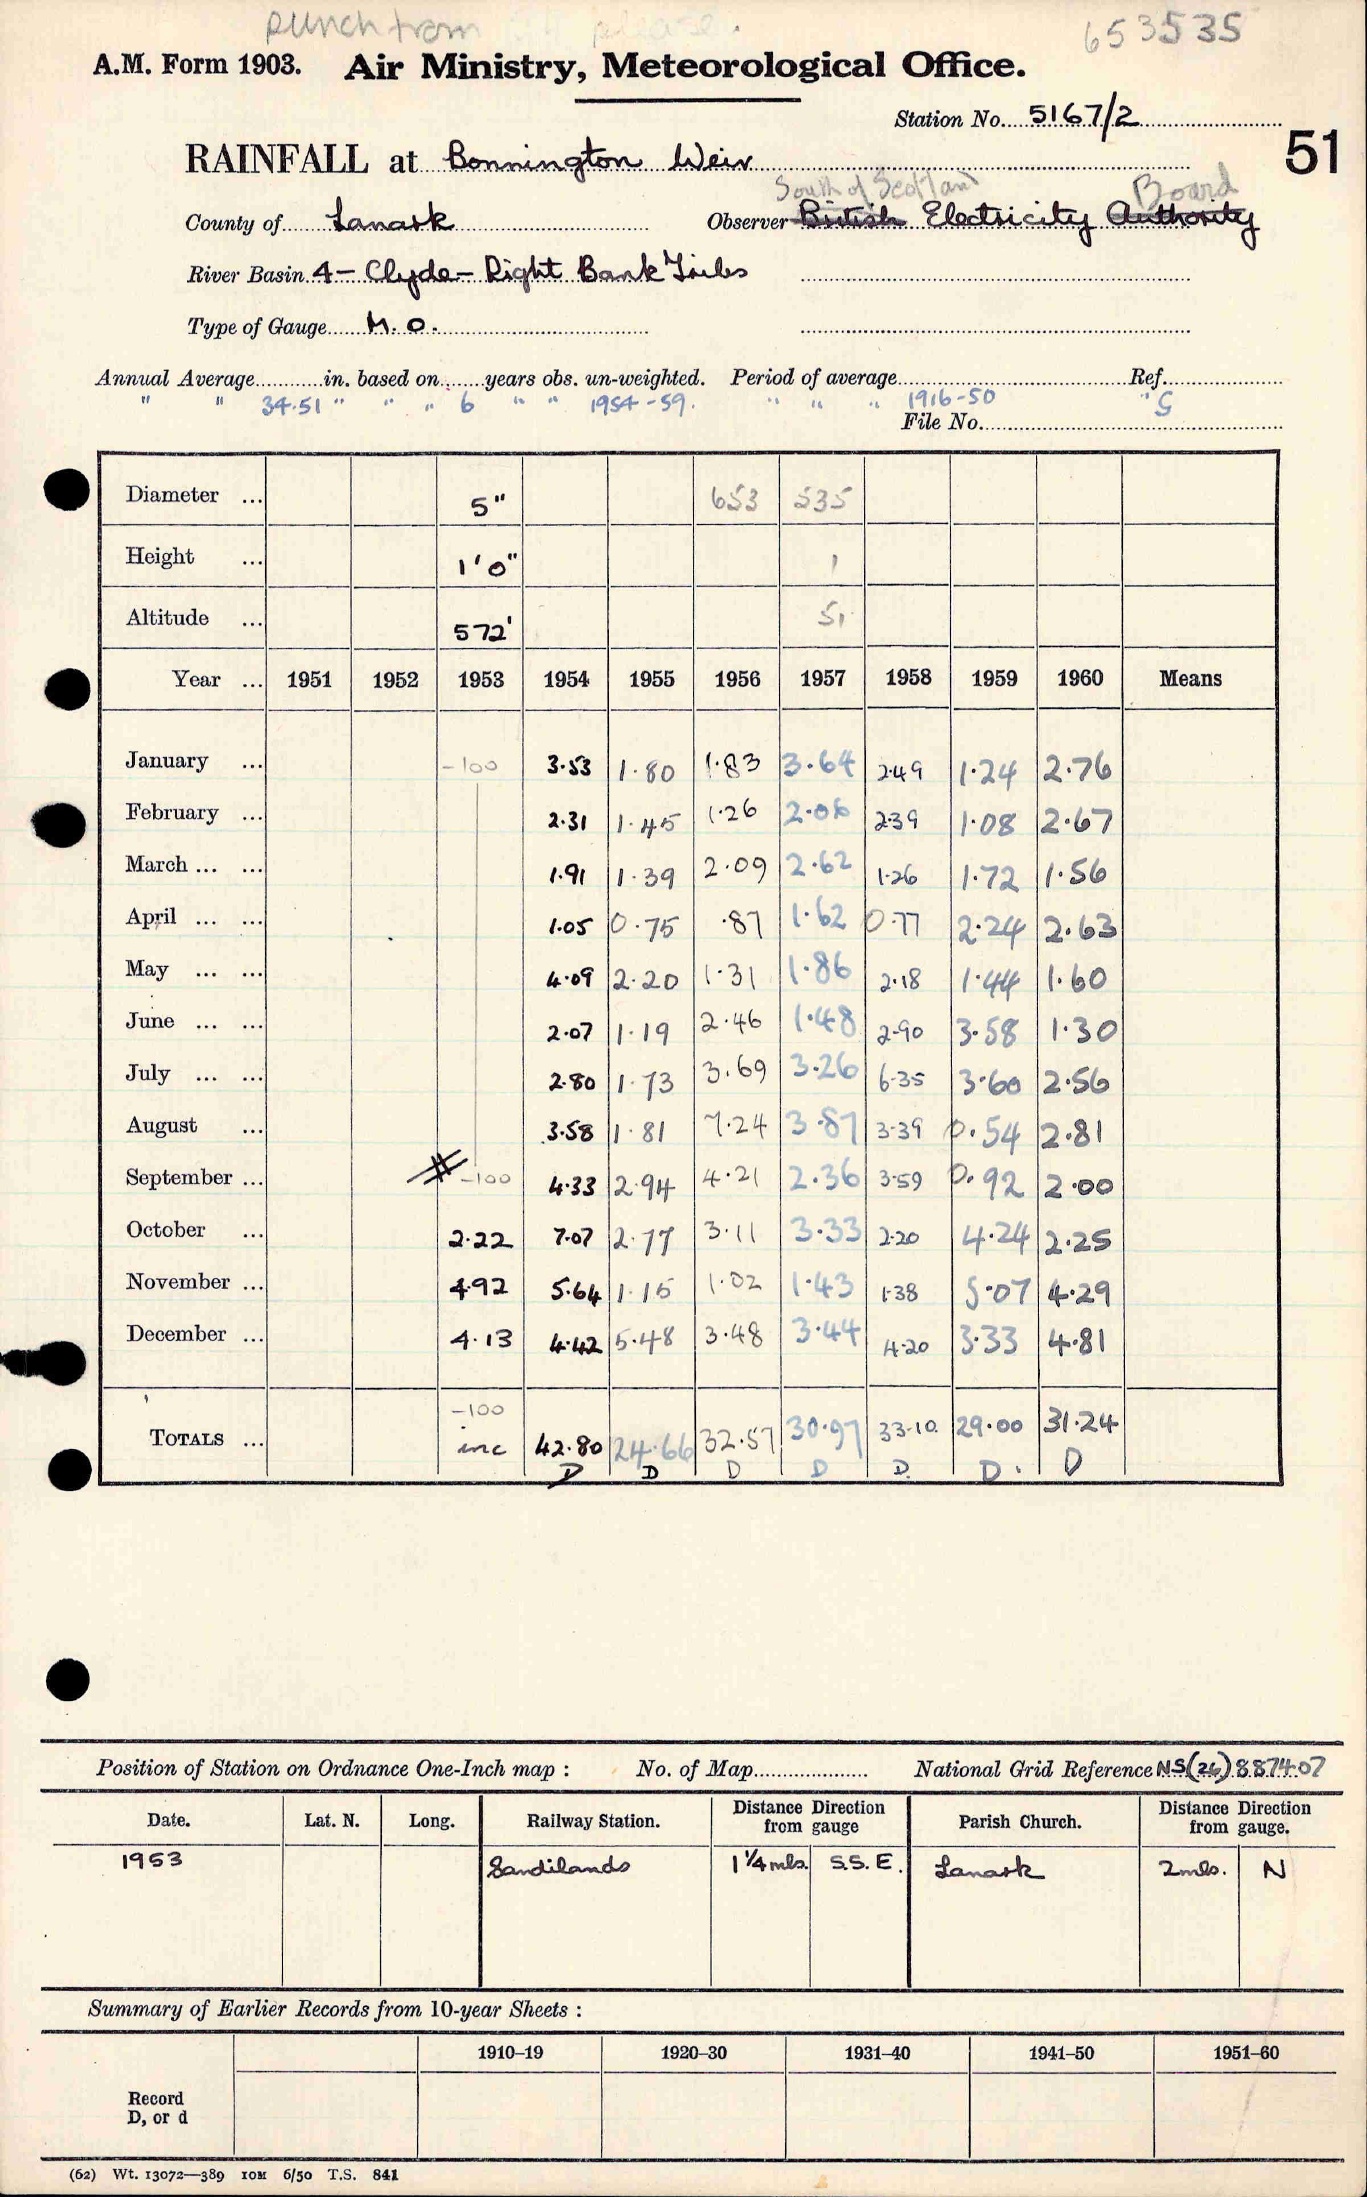 punch from please.
653535
A.M. Form 1903. Air Ministry, Meteorological Office.
Station No. 5167/2
51
RAINFALL at Bonnington Weir
South of Scotland Board
County of Lanark Observer British Electricity Authority
River Basin 4 - Clyde - Right Bank Tribs
Type of Gauge M.O.
Annual Average in. based on years obs. un-weighted. Period of average Ref.
" " 34.51 " " " 6 " " 1954-59. " " " 1916-50 " G
File No.
Diameter ... 5" 653 535
Height ... 1'0" 1
Altitude ... 572' 51
Year ... 1951 1952 1953 1954 1955 1956 1957 1958 1959 1960 Means
January ... -100 3.53 1.80 1.83 3.64 2.49 1.24 2.76
February ... 2.31 1.45 1.26 2.06 2.39 1.08 2.67
March ... ... 1.91 1.39 2.09 2.62 1.26 1.72 1.56
April ... ... 1.05 0.75 .87 1.62 0.77 2.24 2.63
May ... ... 4.09 2.20 1.31 1.86 2.18 1.44 1.60
June ... ... 2.07 1.19 2.46 1.48 2.90 3.58 1.30
July ... ... 2.80 1.73 3.69 3.26 6.35 3.60 2.56
August ... 3.58 1.81 7.24 3.87 3.39 0.54 2.81
September ... -100 4.33 2.94 4.21 2.36 3.59 0.92 2.00
October ... 2.22 7.07 2.77 3.11 3.33 2.20 4.24 2.25
November ... 4.92 5.64 1.15 1.02 1.43 1.38 5.07 4.29
December ... 4.13 4.42 5.48 3.48 3.44 4.20 3.33 4.81
-100
TOTALS ... inc 42.80 24.66 32.57 30.97 33.10 29.00 31.24
D D D D D. D. D
Position of Station on Ordnance One-Inch map : No. of Map National Grid Reference NS(26)887407
Date. Lat. N. Long. Railway Station. Distance from Direction gauge Parish Church. Distance from Direction gauge.
1953 Sandilands 1 1/4 mls. S.S.E. Lanark 2 mls. N
Summary of Earlier Records from 10-year Sheets :
1910–19 1920–30 1931–40 1941–50 1951–60
Record
D, or d
(62) Wt. 13072—389 10M 6/50 T.S. 841